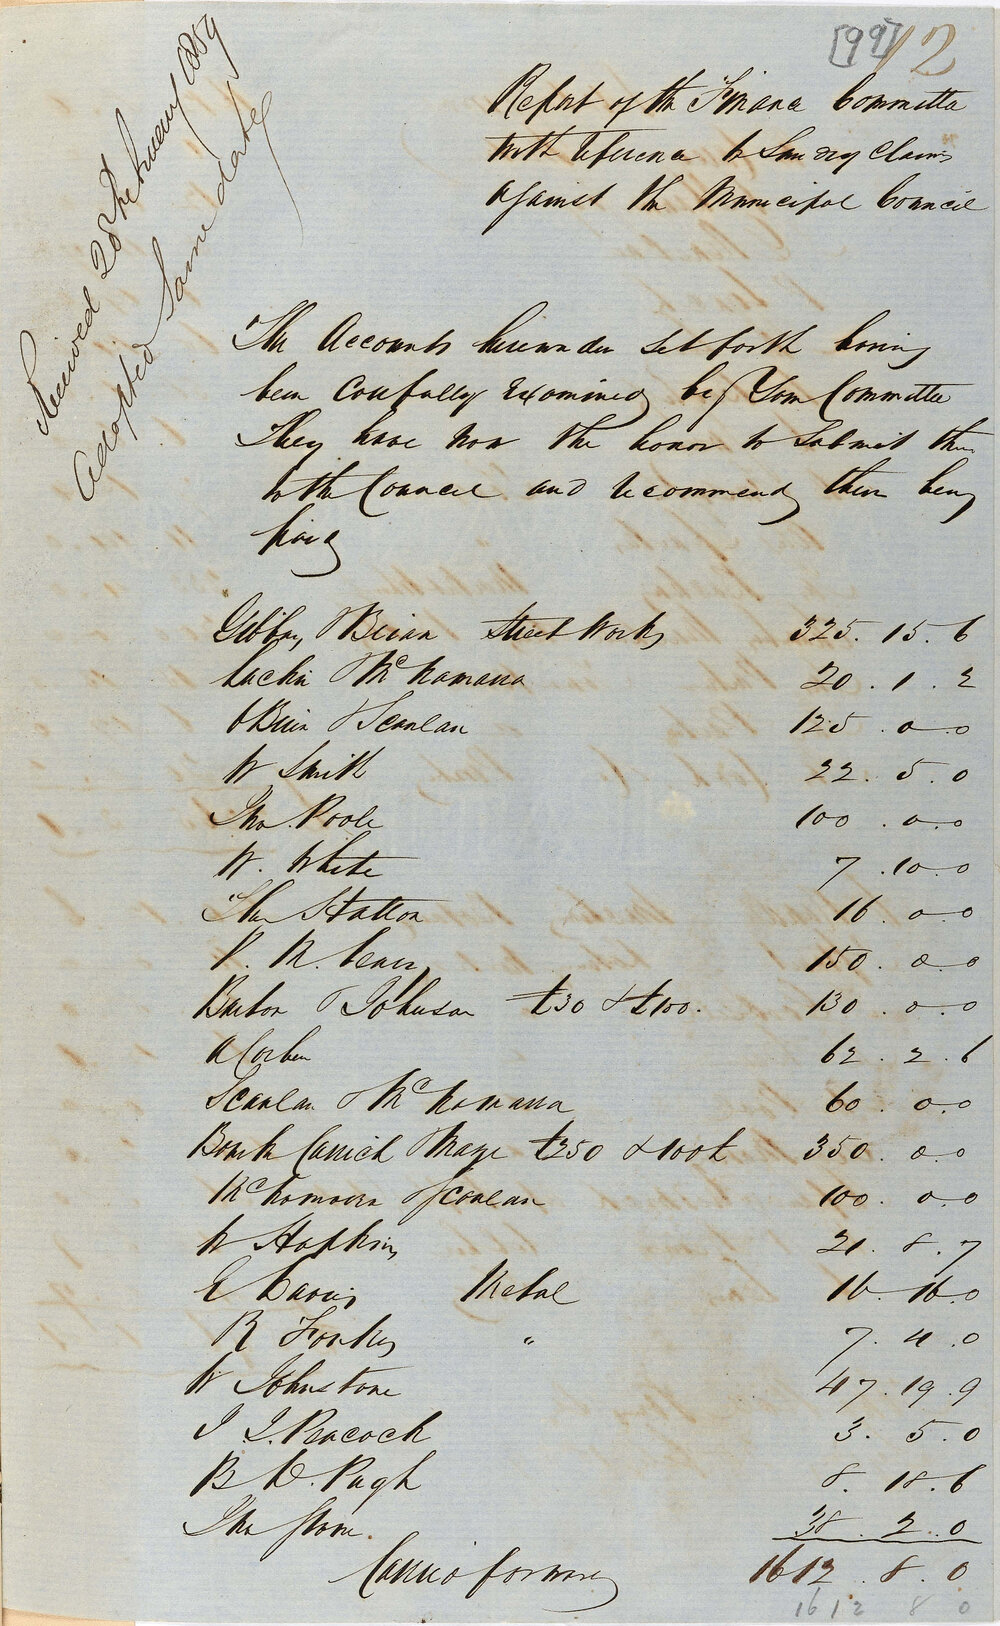 [99] 12
Received 28th February 1859
Adopted Same date
Report of the Finance Committee
with reference to Sundry Claims
against the Municipal Council
The Accounts hereunder set forth having
been Carefully Examined by Your Committee
They have now the honor to Submit them
to the Council and recommend their being
paid
Gibbon & OBrien Street Works 325 . 15 . 6
& McNamara 20 . 1 . 2
OBrien & Scanlan 125 . 0 . 0
W Smith 22 . 5 . 0
Thos. Poole 100 . 0 . 0
W. White 7 . 10 . 0
Thos Statton 16 . 0 . 0
P. R. 150 . 0 . 0
Barton & Johnson £30 & £100. 130 . 0 . 0
A Corben 62 . 2 . 6
Scanlan & McNamara 60 . 0 . 0
Carrick & £250 & 100£ 350 . 0 . 0
McNamara & Scanlan 100 . 0 . 0
W Hopkins 21 . 8 . 7
E Davis Metal 16 . 16 . 0
R " 7 . 4 . 0
W Johnstone 47 . 19 . 9
J J. Peacock 3 . 5 . 0
B D. Pugh 8 . 18 . 6
Thos Stone. 38 . 2 . 0
Carried forward 1612 . 8 . 0
1612 8 0